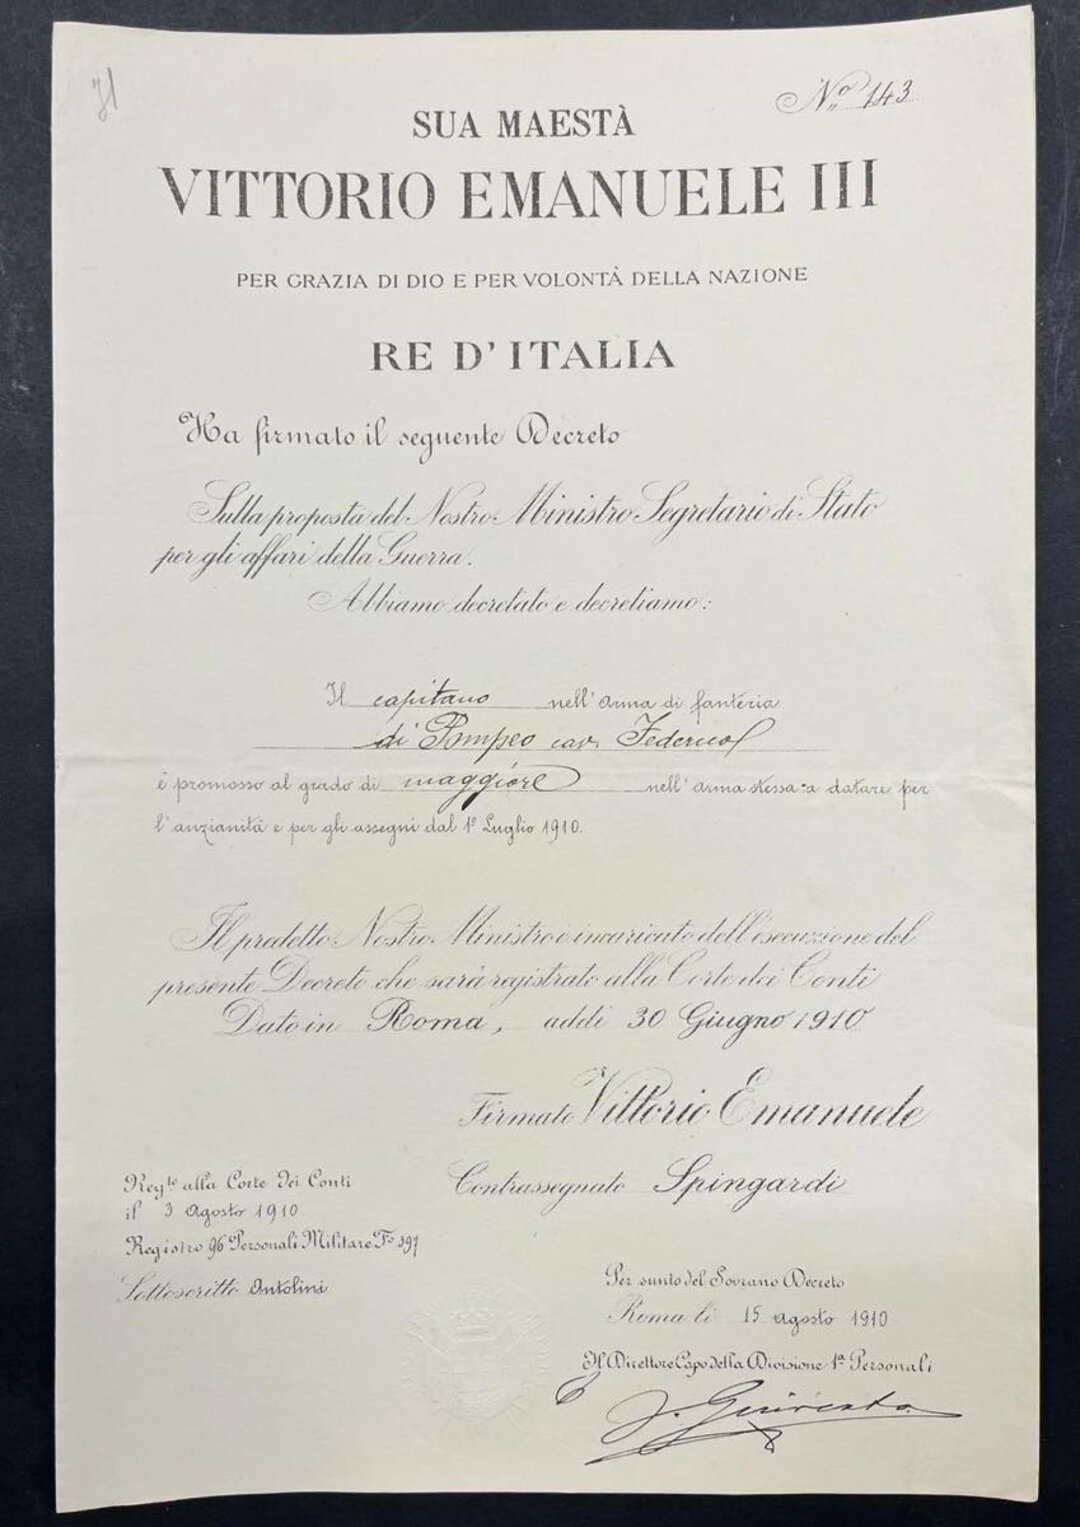 71
Nº 143
SUA MAESTÀ
VITTORIO EMANUELE III
PER GRAZIA DI DIO E PER VOLONTÀ DELLA NAZIONE
RE D'ITALIA
Ha firmato il seguente Decreto
Sulla proposta del Nostro Ministro Segretario di Stato
per gli affari della Guerra.
Abbiamo decretato e decretiamo:
Il capitano nell'arma di fanteria
di Pompeo cav. Federico
è promosso al grado di maggiore nell'arma stessa a datare per
l'anzianità e per gli assegni dal 1º Luglio 1910.
Il predetto Nostro Ministro è incaricato dell'esecuzione del
presente Decreto che sarà registrato alla Corte dei Conti
Dato in Roma, addi 30 Giugno 1910
Firmato Vittorio Emanuele
Contrassegnato Spingardi
Regto alla Corte dei Conti
il 3 Agosto 1910
Registro 96 Personali Militare Fº 397
Sottoscritto Antolini
Per sunto del Sovrano Decreto
Roma li 15 Agosto 1910
Il Direttore Capo della Divisione 1ª Personali